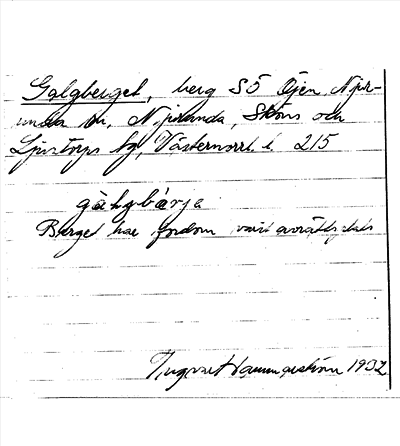 Galgberget, berg SÖ Öjen, Njur-
unda sn, Njurunda, Sköns och
Ljustorps tg, Västernorrl. l. 215
gàlgbærja
Berget har fordom varit avrättsplats
Ingvar Hammarström 1932